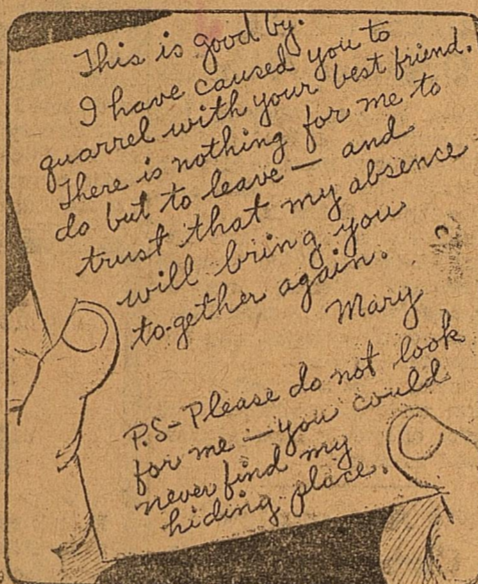 This is good by.
I have caused you to
quarrel with your best friend.
There is nothing for me to
do but to leave — and
trust that my absence
will bring you
to-gether again.
Mary
P.S- Please do not look
for me — you could
never find my
hiding place.